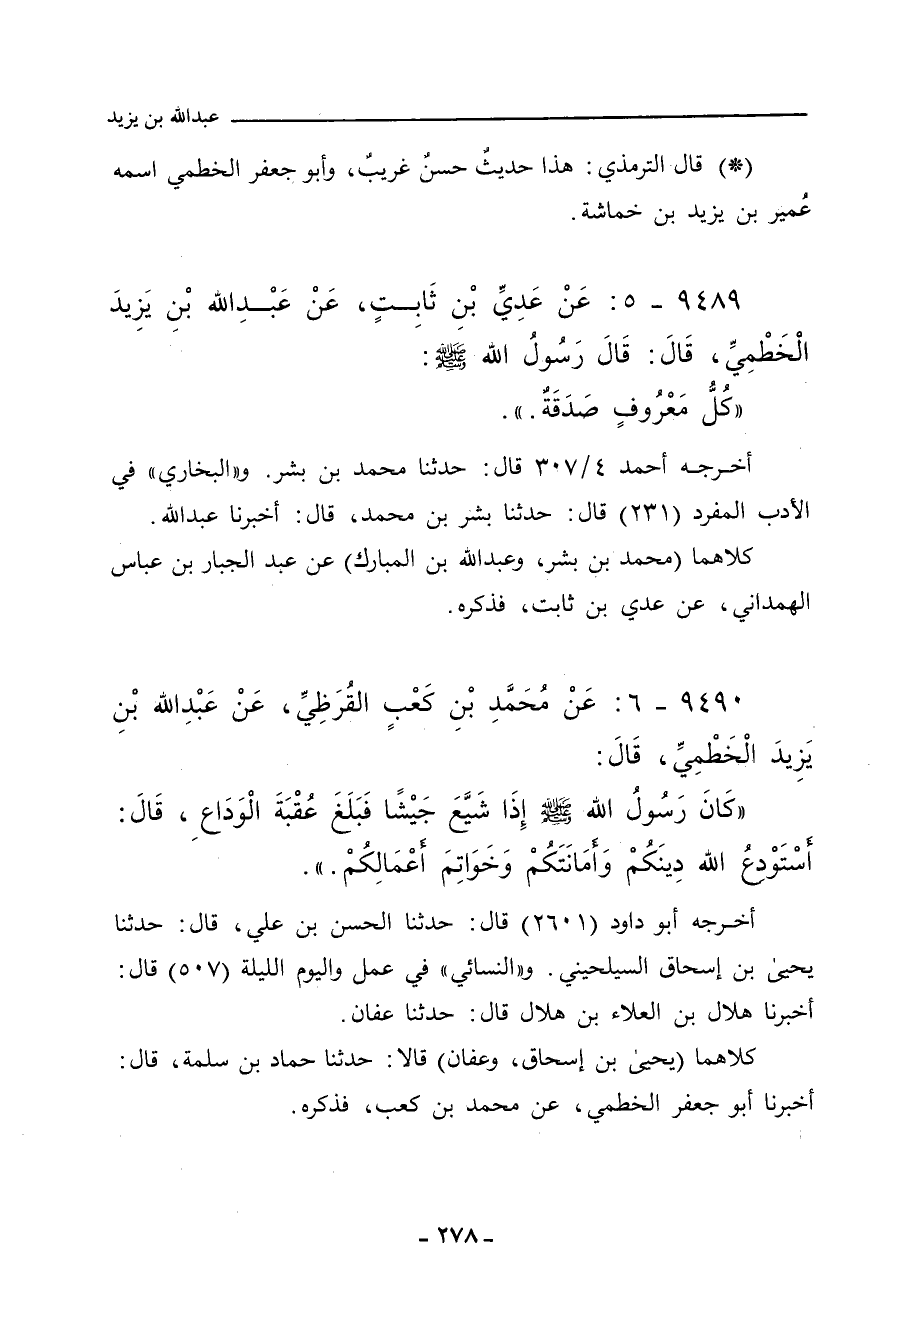 عبدالله بن يزيد
(*) قال الترمذي: هذا حديثٌ حسنٌ غريبٌ، وأبو جعفر الخطمي اسمه
عُمير بن يزيد بن خماشة.
٩٤٨٩ - ٥: عَنْ عَدِيِّ بْنِ ثَابِتٍ، عَنْ عَبْدِالله بْنِ يَزِيدَ
الْخَطْمِيِّ، قَالَ: قَالَ رَسُولُ الله ﷺ:
«كُلُّ مَعْرُوفٍ صَدَقَةٌ.».
أخرجه أحمد ٣٠٧/٤ قال: حدثنا محمد بن بشر. و«البخاري» في
الأدب المفرد (٢٣١) قال: حدثنا بشر بن محمد، قال: أخبرنا عبدالله.
كلاهما (محمد بن بشر، وعبدالله بن المبارك) عن عبد الجبار بن عباس
الهمداني، عن عدي بن ثابت، فذكره.
٩٤٩٠ - ٦: عَنْ مُحَمَّدِ بْنِ كَعْبٍ القُرَظِيِّ، عَنْ عَبْدِالله بْنِ
يَزِيدَ الْخَطْمِيِّ، قَالَ:
«كَانَ رَسُولُ الله ﷺ إِذَا شَيَّعَ جَيْشًا فَبَلَغَ عُقْبَةَ الْوَدَاعِ، قَالَ:
أَسْتَوْدِعُ الله دِينَكُمْ وَأَمَانَتَكُمْ وَخَوَاتِمَ أَعْمَالِكُمْ.».
أخرجه أبو داود (٢٦٠١) قال: حدثنا الحسن بن علي، قال: حدثنا
يحيىٰ بن إسحاق السيلحيني. و«النسائي» في عمل واليوم الليلة (٥٠٧) قال:
أخبرنا هلال بن العلاء بن هلال قال: حدثنا عفان.
كلاهما (يحيىٰ بن إسحاق، وعفان) قالا: حدثنا حماد بن سلمة، قال:
أخبرنا أبو جعفر الخطمي، عن محمد بن كعب، فذكره.
- ٢٧٨ -